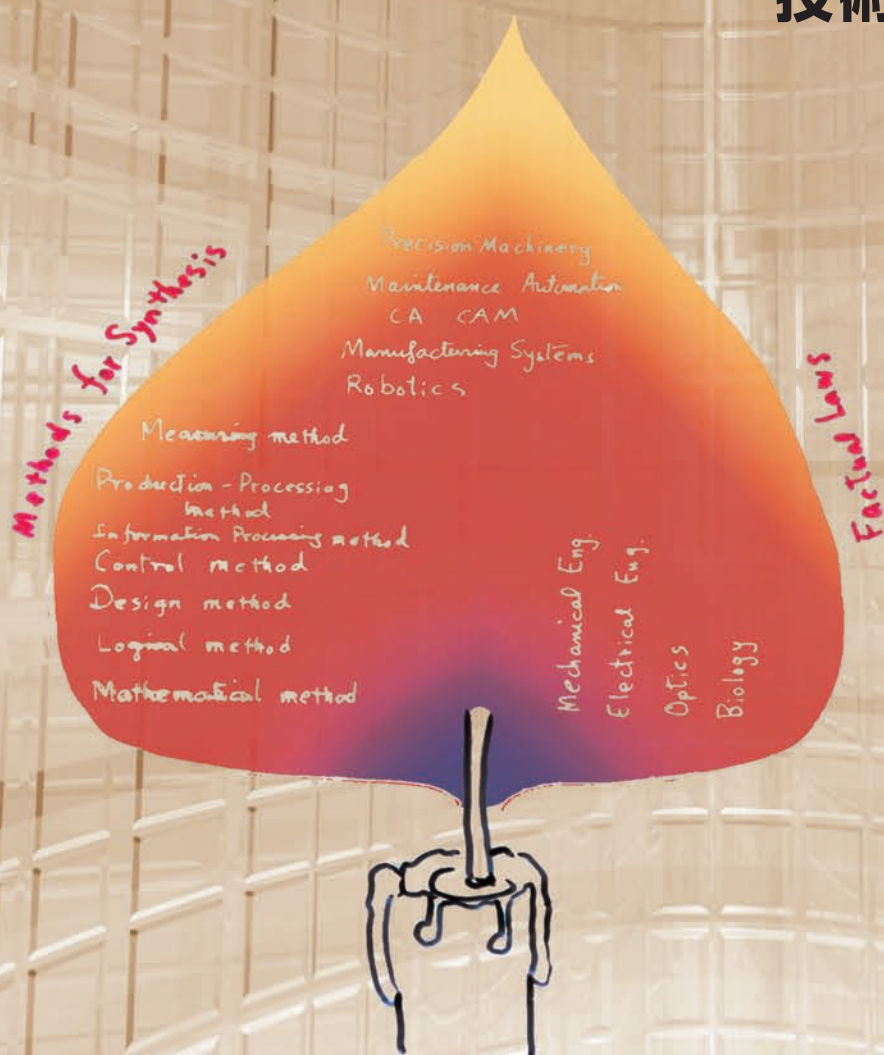 技術
Precision Machinery
Maintenance Automation
CA CAM
Manufacturing Systems
Robotics
Methods for Synthesis
Measuring method
Production-Processing
method
Information Processing method
Control method
Design method
Logical method
Mathematical method
Mechanical Eng.
Electrical Eng.
Optics
Biology
Factual Laws